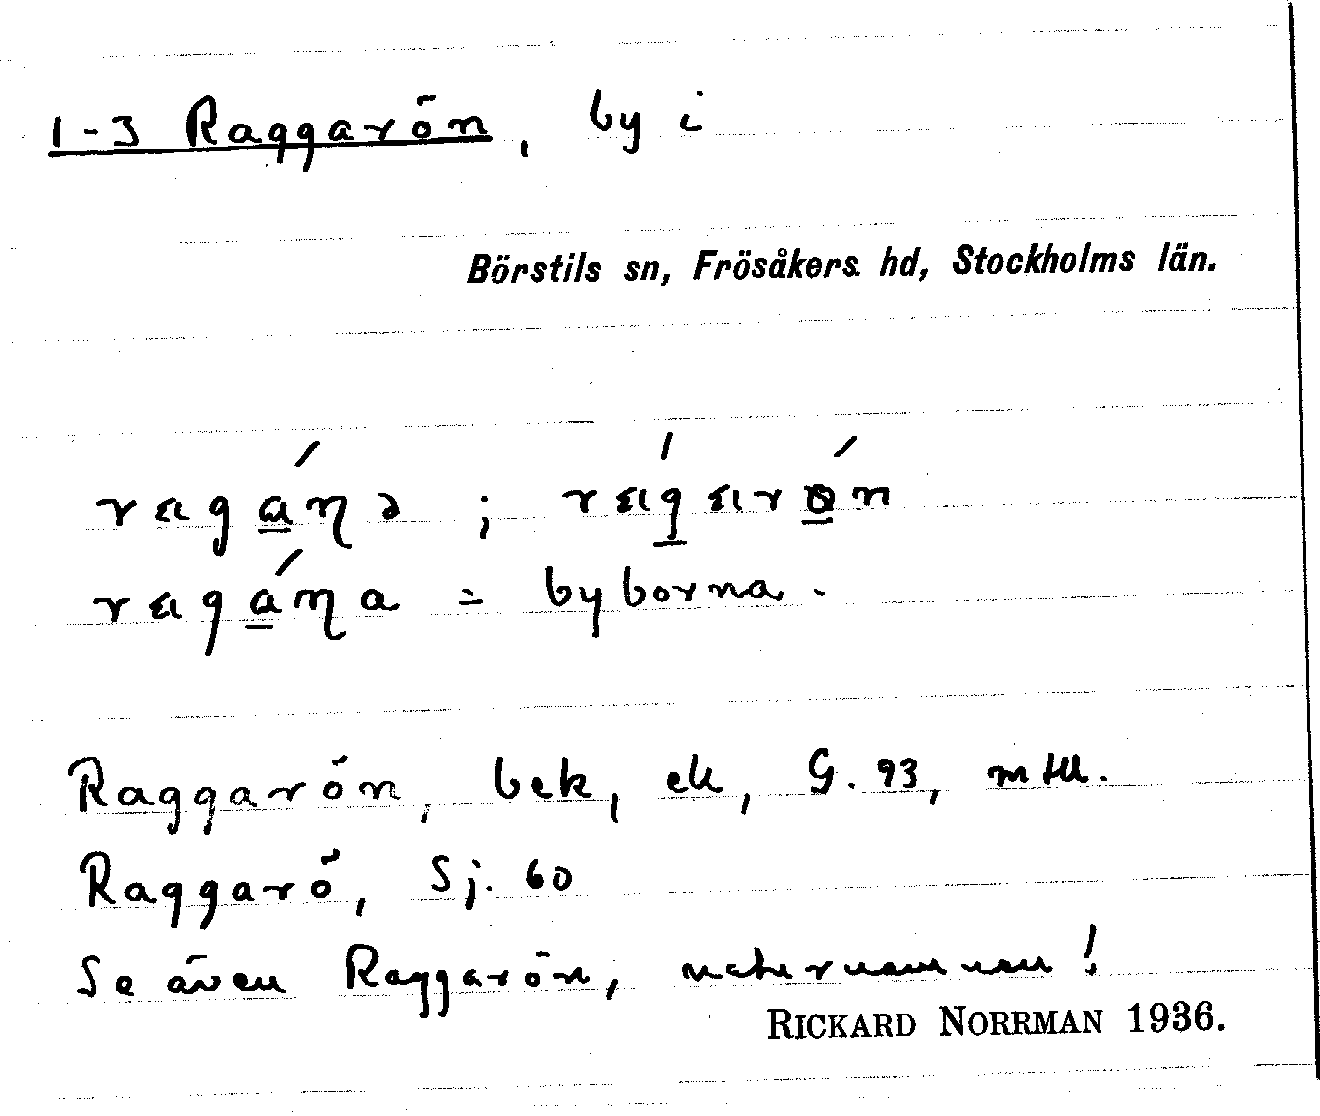 1-3 Raggarön, by i
Börstils sn, Frösåkers hd, Stockholms län.
ragáŋə ; rágarón
ragáŋa = byborna.
Raggarön, bek, ek, G. 93, mtll.
Raggarö, Sj. 60
Se även Raggarön, naturnamnen!
RICKARD NORRMAN 1936.